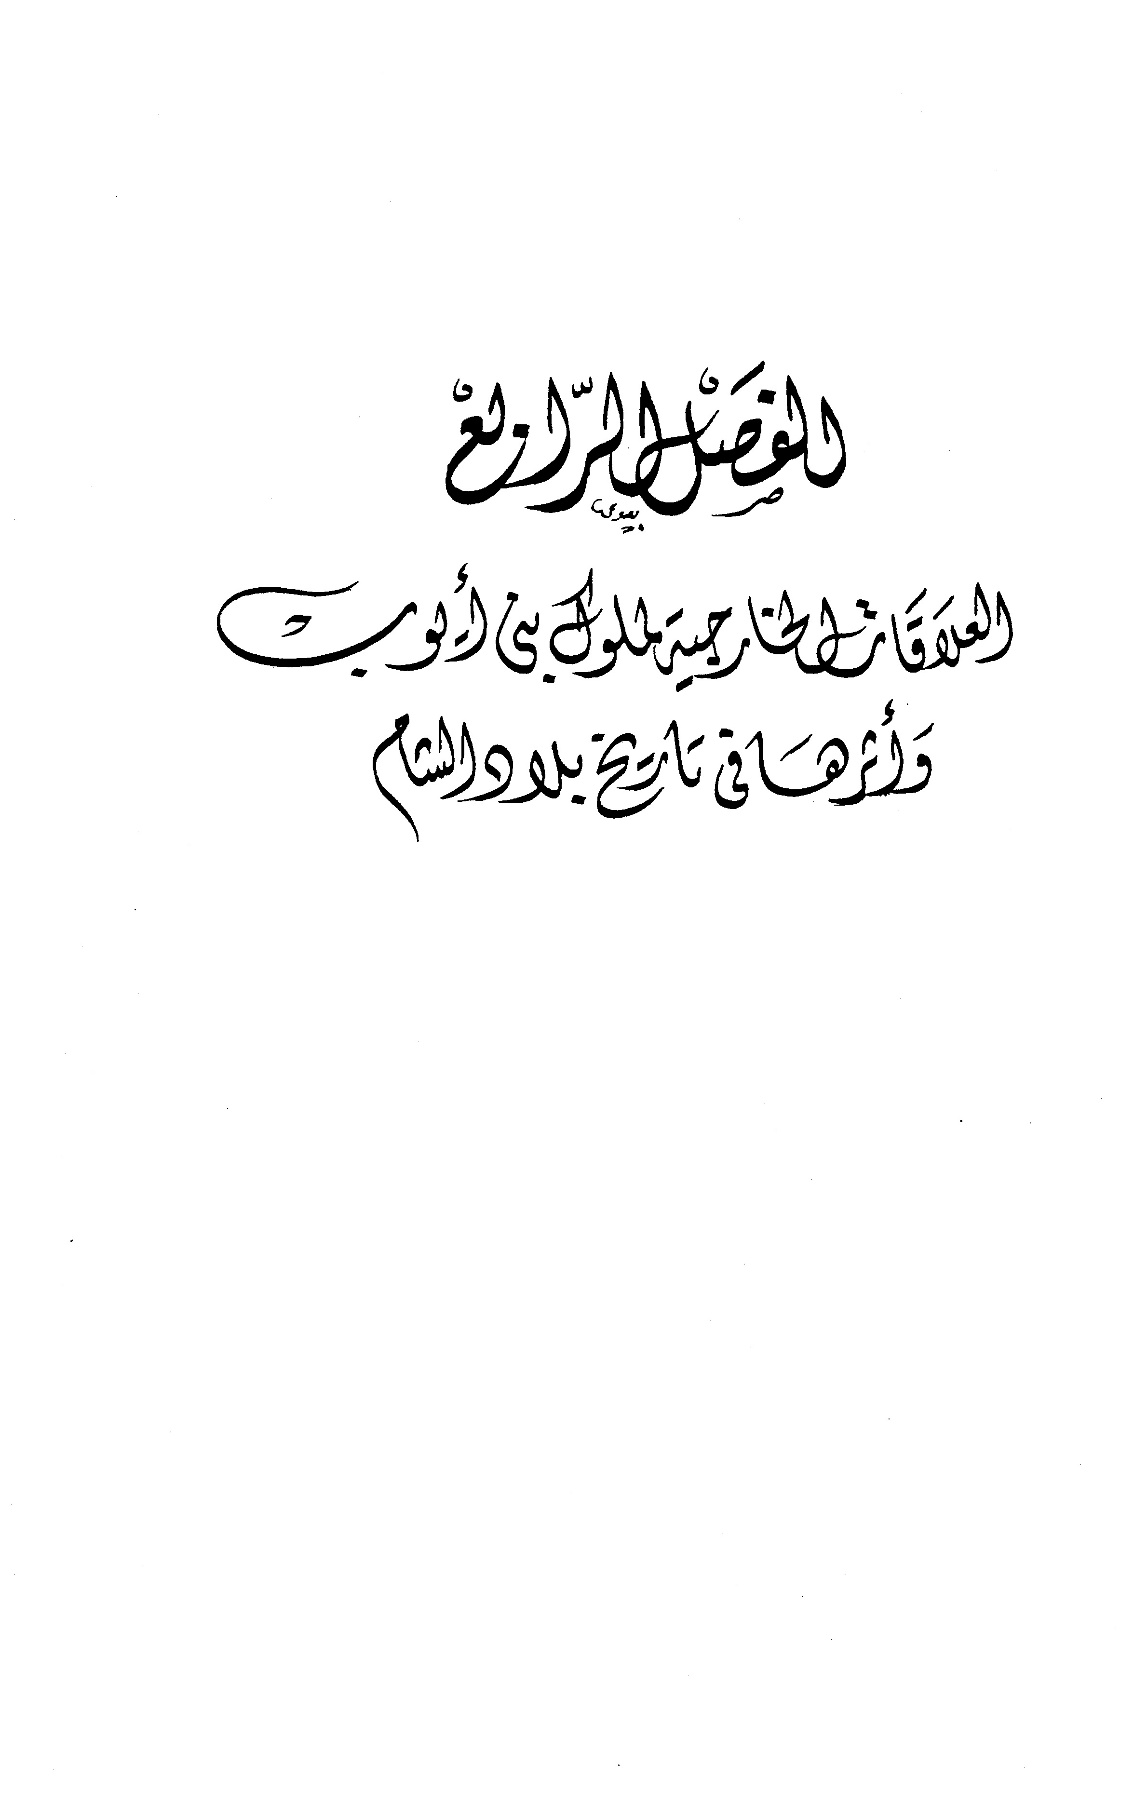 الفَصْل الرّابعْ
العلاَقَات الخارجية لملوك بنى أيوب
وَأثرهَا فى تاريخ بلاد الشام